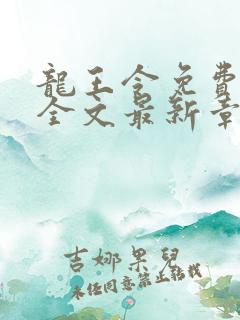 龍王令免費
全文最新章
吉娜果兒
未經同意禁止轉載